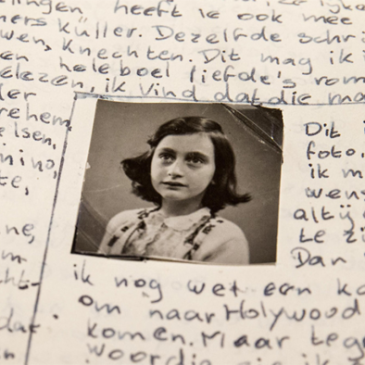 elingen heeft ie ook mee
ners küller. Dezelfde schri
wen, knechten. Dit mag ik i
en heleboel liefde's rom
elezen, ik vind dat die ma
der
rehem,
elsen,
nino,
te,
ne,
m
cht-
dat
en
Dit i
foto,
ik m
wens
altij
te zi
Dan
ik nog wel een ka
om naar Holywood
komen. Maar tege
woordig zie ik